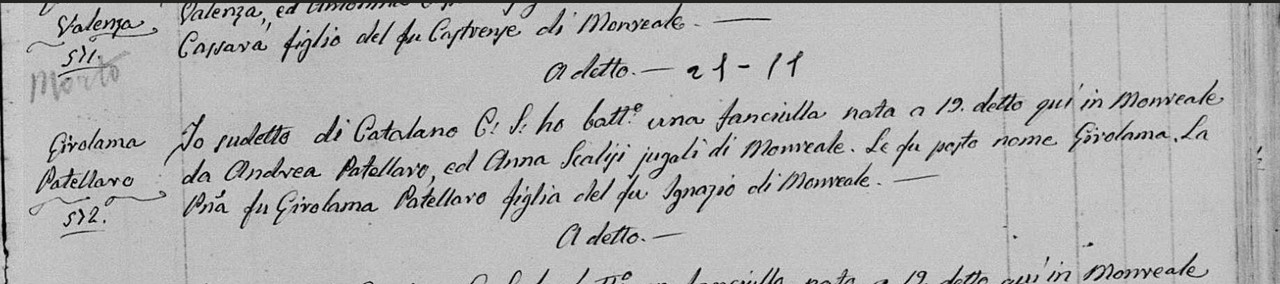 Valenza
571.
Morto
Valenza, ed
Cassarà figlio del fu Castrenze di Monreale. —
A detto. — 21 - 11
Girolama
Patellaro
572.
Io sudetto di Catalano C: S: ho batt.° una fanciulla nata a 19. detto quì in Monreale
da Andrea Patellaro, ed Anna Scalisi jugali di Monreale. Le fu posto nome Girolama. La
Pnã fu Girolama Patellaro figlia del fu Ignazio di Monreale. —
A detto. —
fanciulla nata a 19. detto quì in Monreale